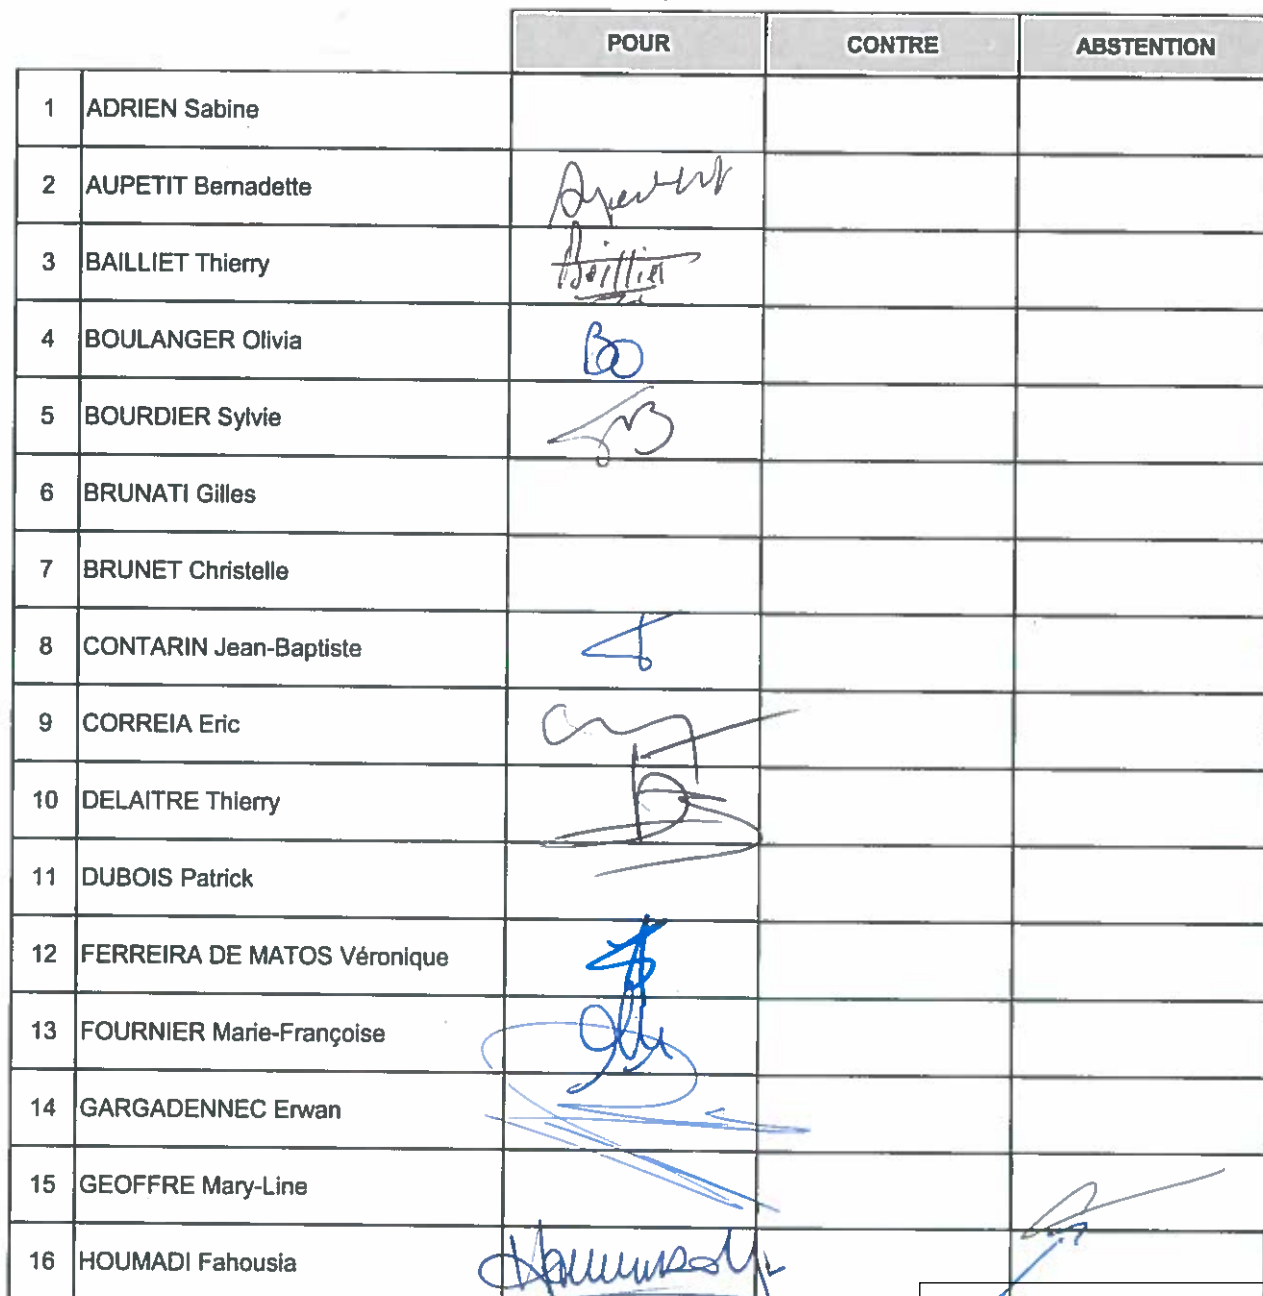 POUR CONTRE ABSTENTION
1 ADRIEN Sabine
2 AUPETIT Bernadette
3 BAILLIET Thierry Bailliet
4 BOULANGER Olivia BO
5 BOURDIER Sylvie
6 BRUNATI Gilles
7 BRUNET Christelle
8 CONTARIN Jean-Baptiste
9 CORREIA Eric
10 DELAITRE Thierry
11 DUBOIS Patrick
12 FERREIRA DE MATOS Véronique
13 FOURNIER Marie-Françoise
14 GARGADENNEC Erwan
15 GEOFFRE Mary-Line
16 HOUMADI Fahousia